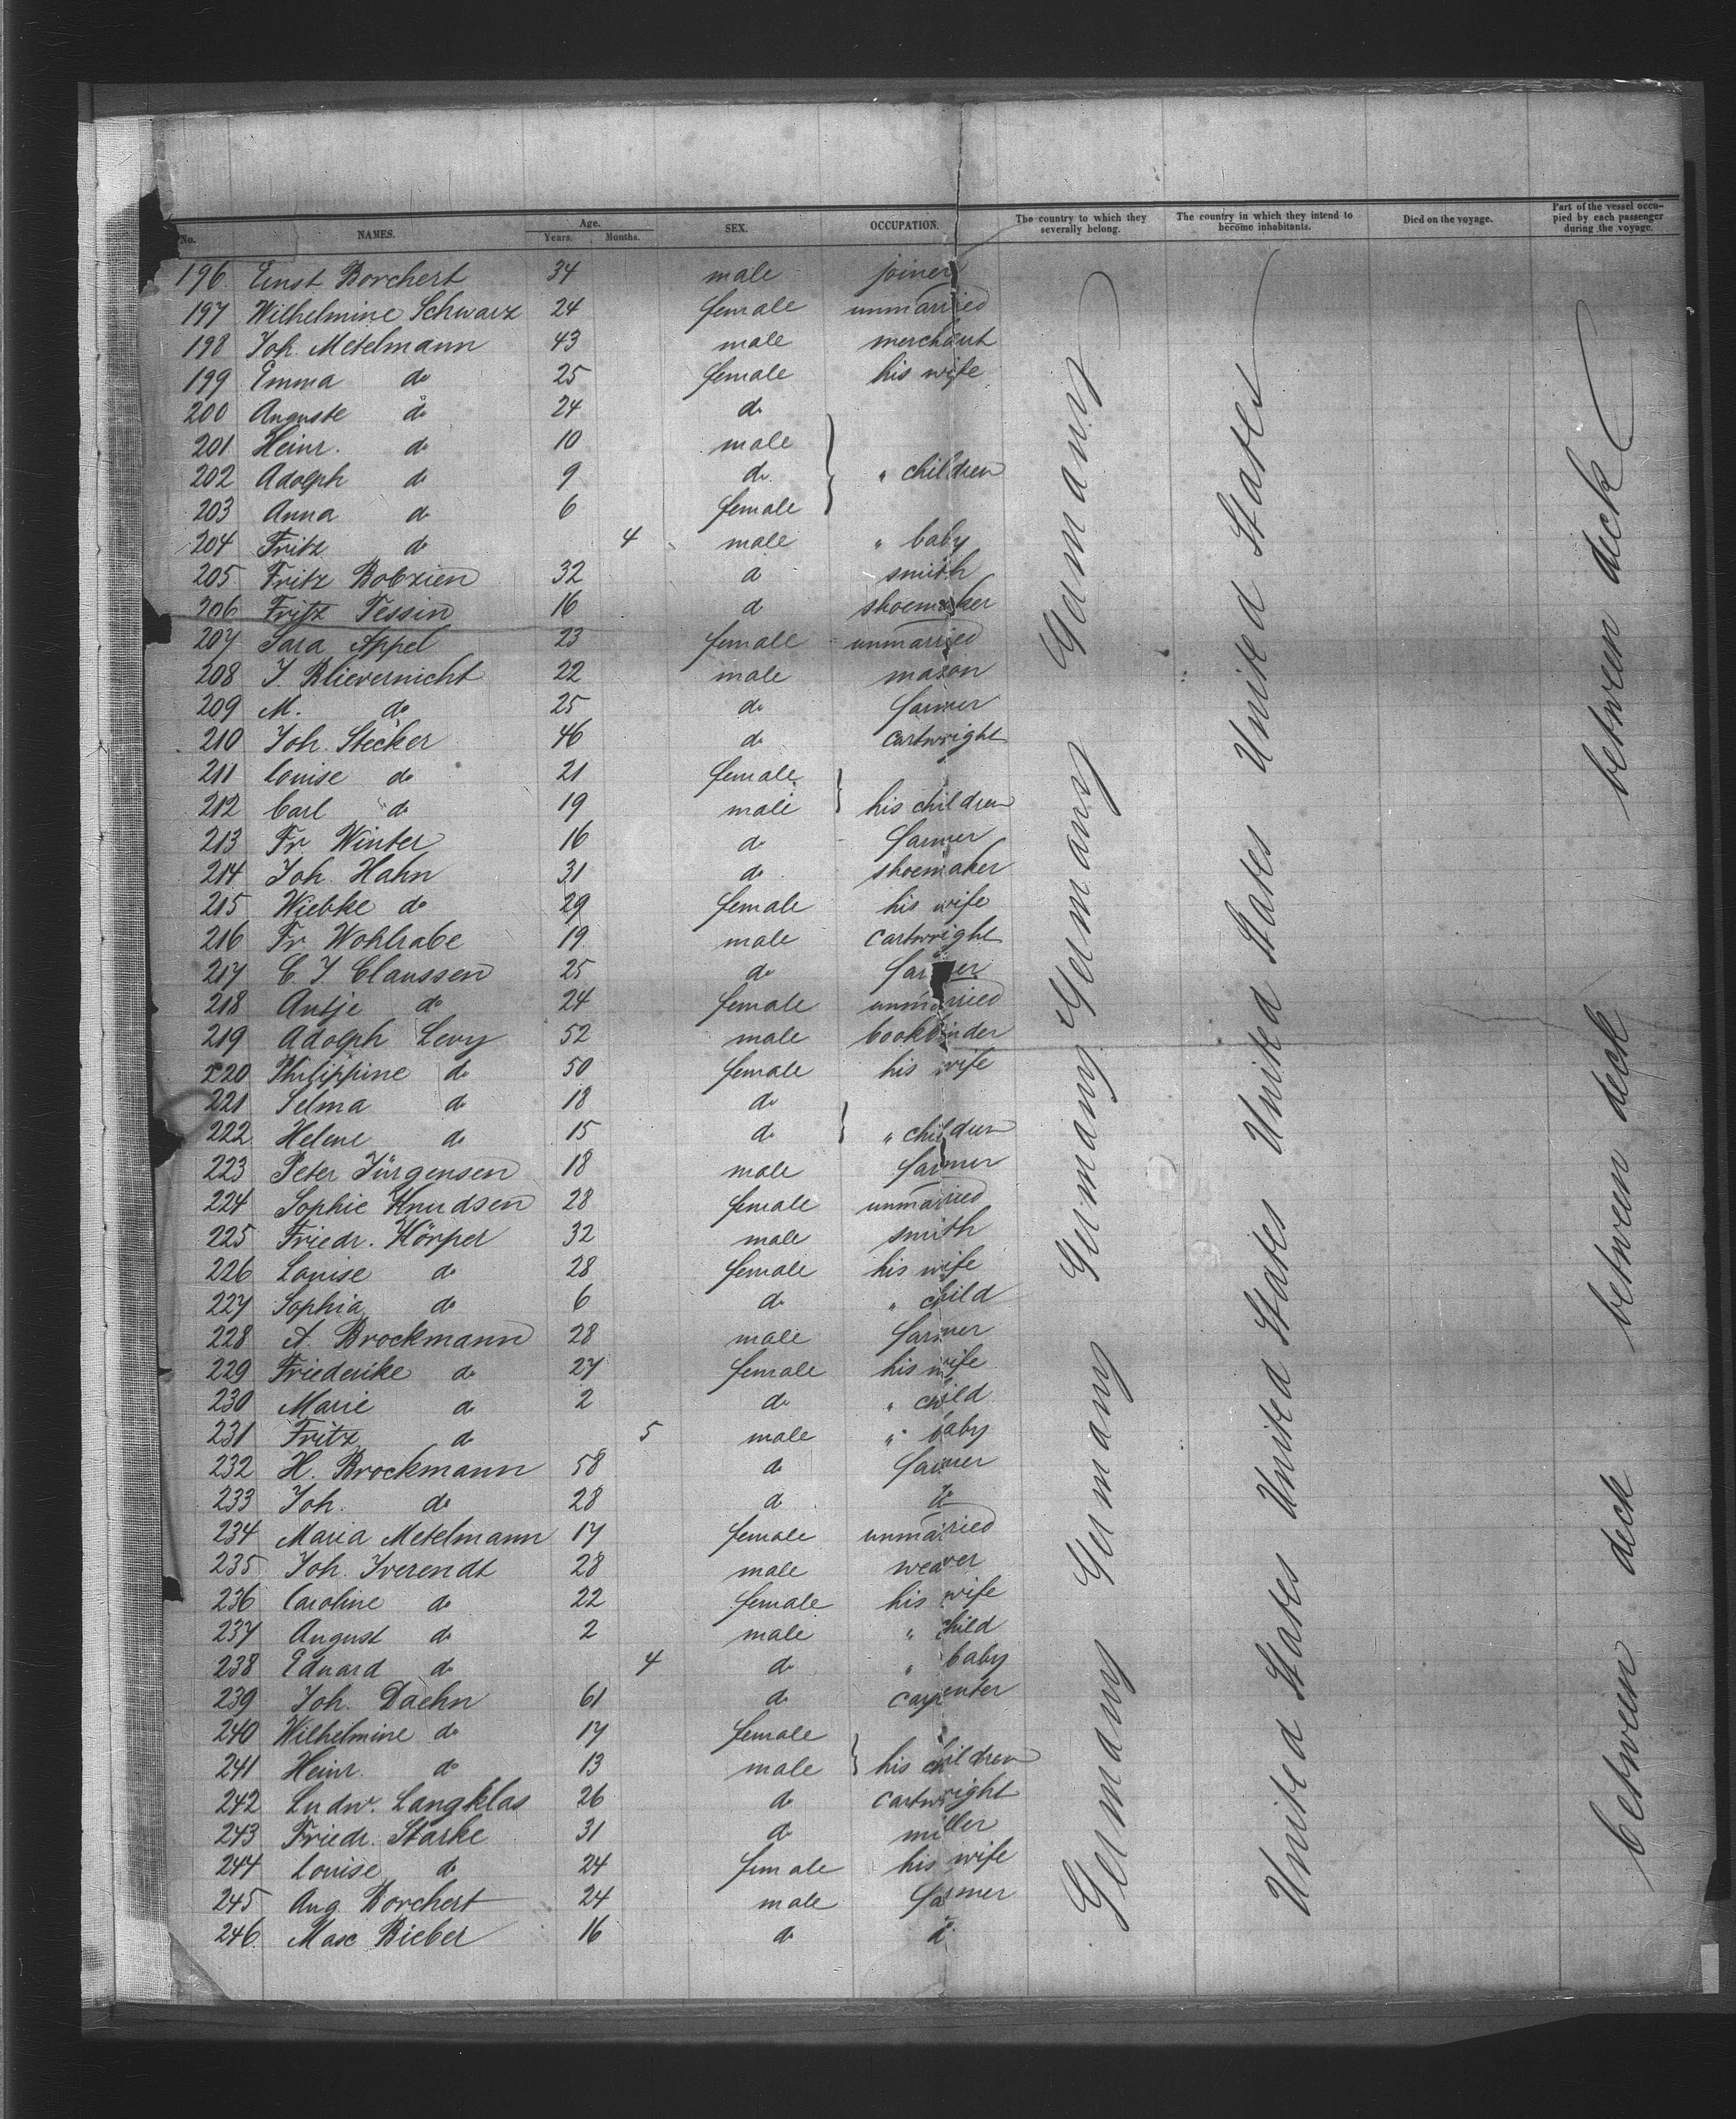 No. NAMES. Age. Years. Months. SEX. OCCUPATION. The country to which they severally belong. The country in which they intend to become inhabitants. Died on the voyage. Part of the vessel occupied by each passenger during the voyage.
196 Ernst Borchert 34 male joiner
197 Wilhelmine Schwarz 24 female unmarried
198 Joh. Metelmann 43 male merchant
199 Emma do 25 female his wife
200 Auguste do 24 do
201 Heinr. do 10 male
202 Adolph do 9 do " children
203 Anna do 6 female
204 Fritz do 4 male " baby
205 Fritz Bobzien 32 do smith
206 Fritz Tessin 16 do shoemaker
207 Sara Appel 23 female unmarried
208 J. Blievernicht 22 male mason
209 M. do 25 do farmer
210 Joh. Stecker 46 do cartwright
211 Louise do 21 female
212 Carl do 19 male his children
213 Fr. Winter 16 do farmer
214 Joh. Hahn 31 do shoemaker
215 Wiebke do 29 female his wife
216 Fr. Wohlrabe 19 male cartwright
217 C. J. Claussen 25 do farmer
218 Antje do 24 female unmarried
219 Adolph Levy 52 male bookbinder
220 Philippine do 50 female his wife
221 Selma do 18 do
222 Helene do 15 do " children
223 Peter Jürgensen 18 male farmer
224 Sophie Knudsen 28 female unmarried
225 Friedr. Körper 32 male smith
226 Louise do 28 female his wife
227 Sophia do 6 do " child
228 A. Brockmann 28 male farmer
229 Friederike do 27 female his wife
230 Marie do 2 do " child
231 Fritz do 5 male " baby
232 H. Brockmann 58 do farmer
233 Joh. do 28 do do
234 Maria Metelmann 17 female unmarried
235 Joh. Iverendt 28 male weaver
236 Caroline do 22 female his wife
237 August do 2 male " child
238 Eduard do 4 do " baby
239 Joh. Daehn 61 do carpenter
240 Wilhelmine do 17 female
241 Heinr. do 13 male his children
242 Ludw. Langklas 26 do cartwright
243 Friedr. Starke 31 do miller
244 Louise do 24 female his wife
245 Aug. Borchert 24 male farmer
246 Max Bieber 16 do do
Germany Germany Germany Germany Germany
United States United States United States United States
between deck between deck between deck